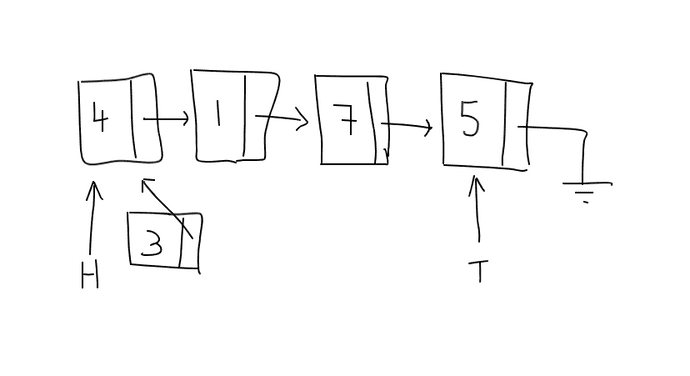 4 1 7 5
3
H T